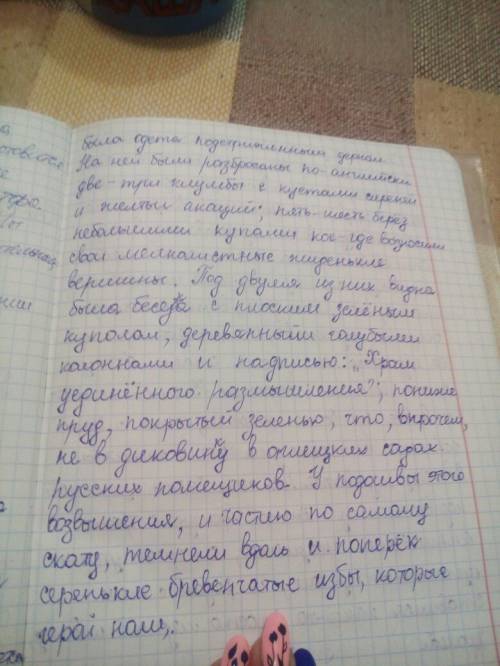 была одета подстриженным дерном.
На ней были разбросаны по-английски
две-три клумбы с кустами сиреней
и желтых акаций; пять-шесть берез
небольшими купами кое-где возносили
свои мелколистные жиденькие
вершины. Под двумя из них видна
была беседка с плоским зелёным
куполом, деревянными голубыми
колоннами и надписью: „Храм
уединённого размышления"; пониже
пруд, покрытый зеленью, что, впрочем,
не в диковинку в аглицких садах
русских помещиков. У подошвы этого
возвышения, и частию по самому
скату, темнели вдоль и поперёк
серенькие бревенчатые избы, которые
герой наш,.